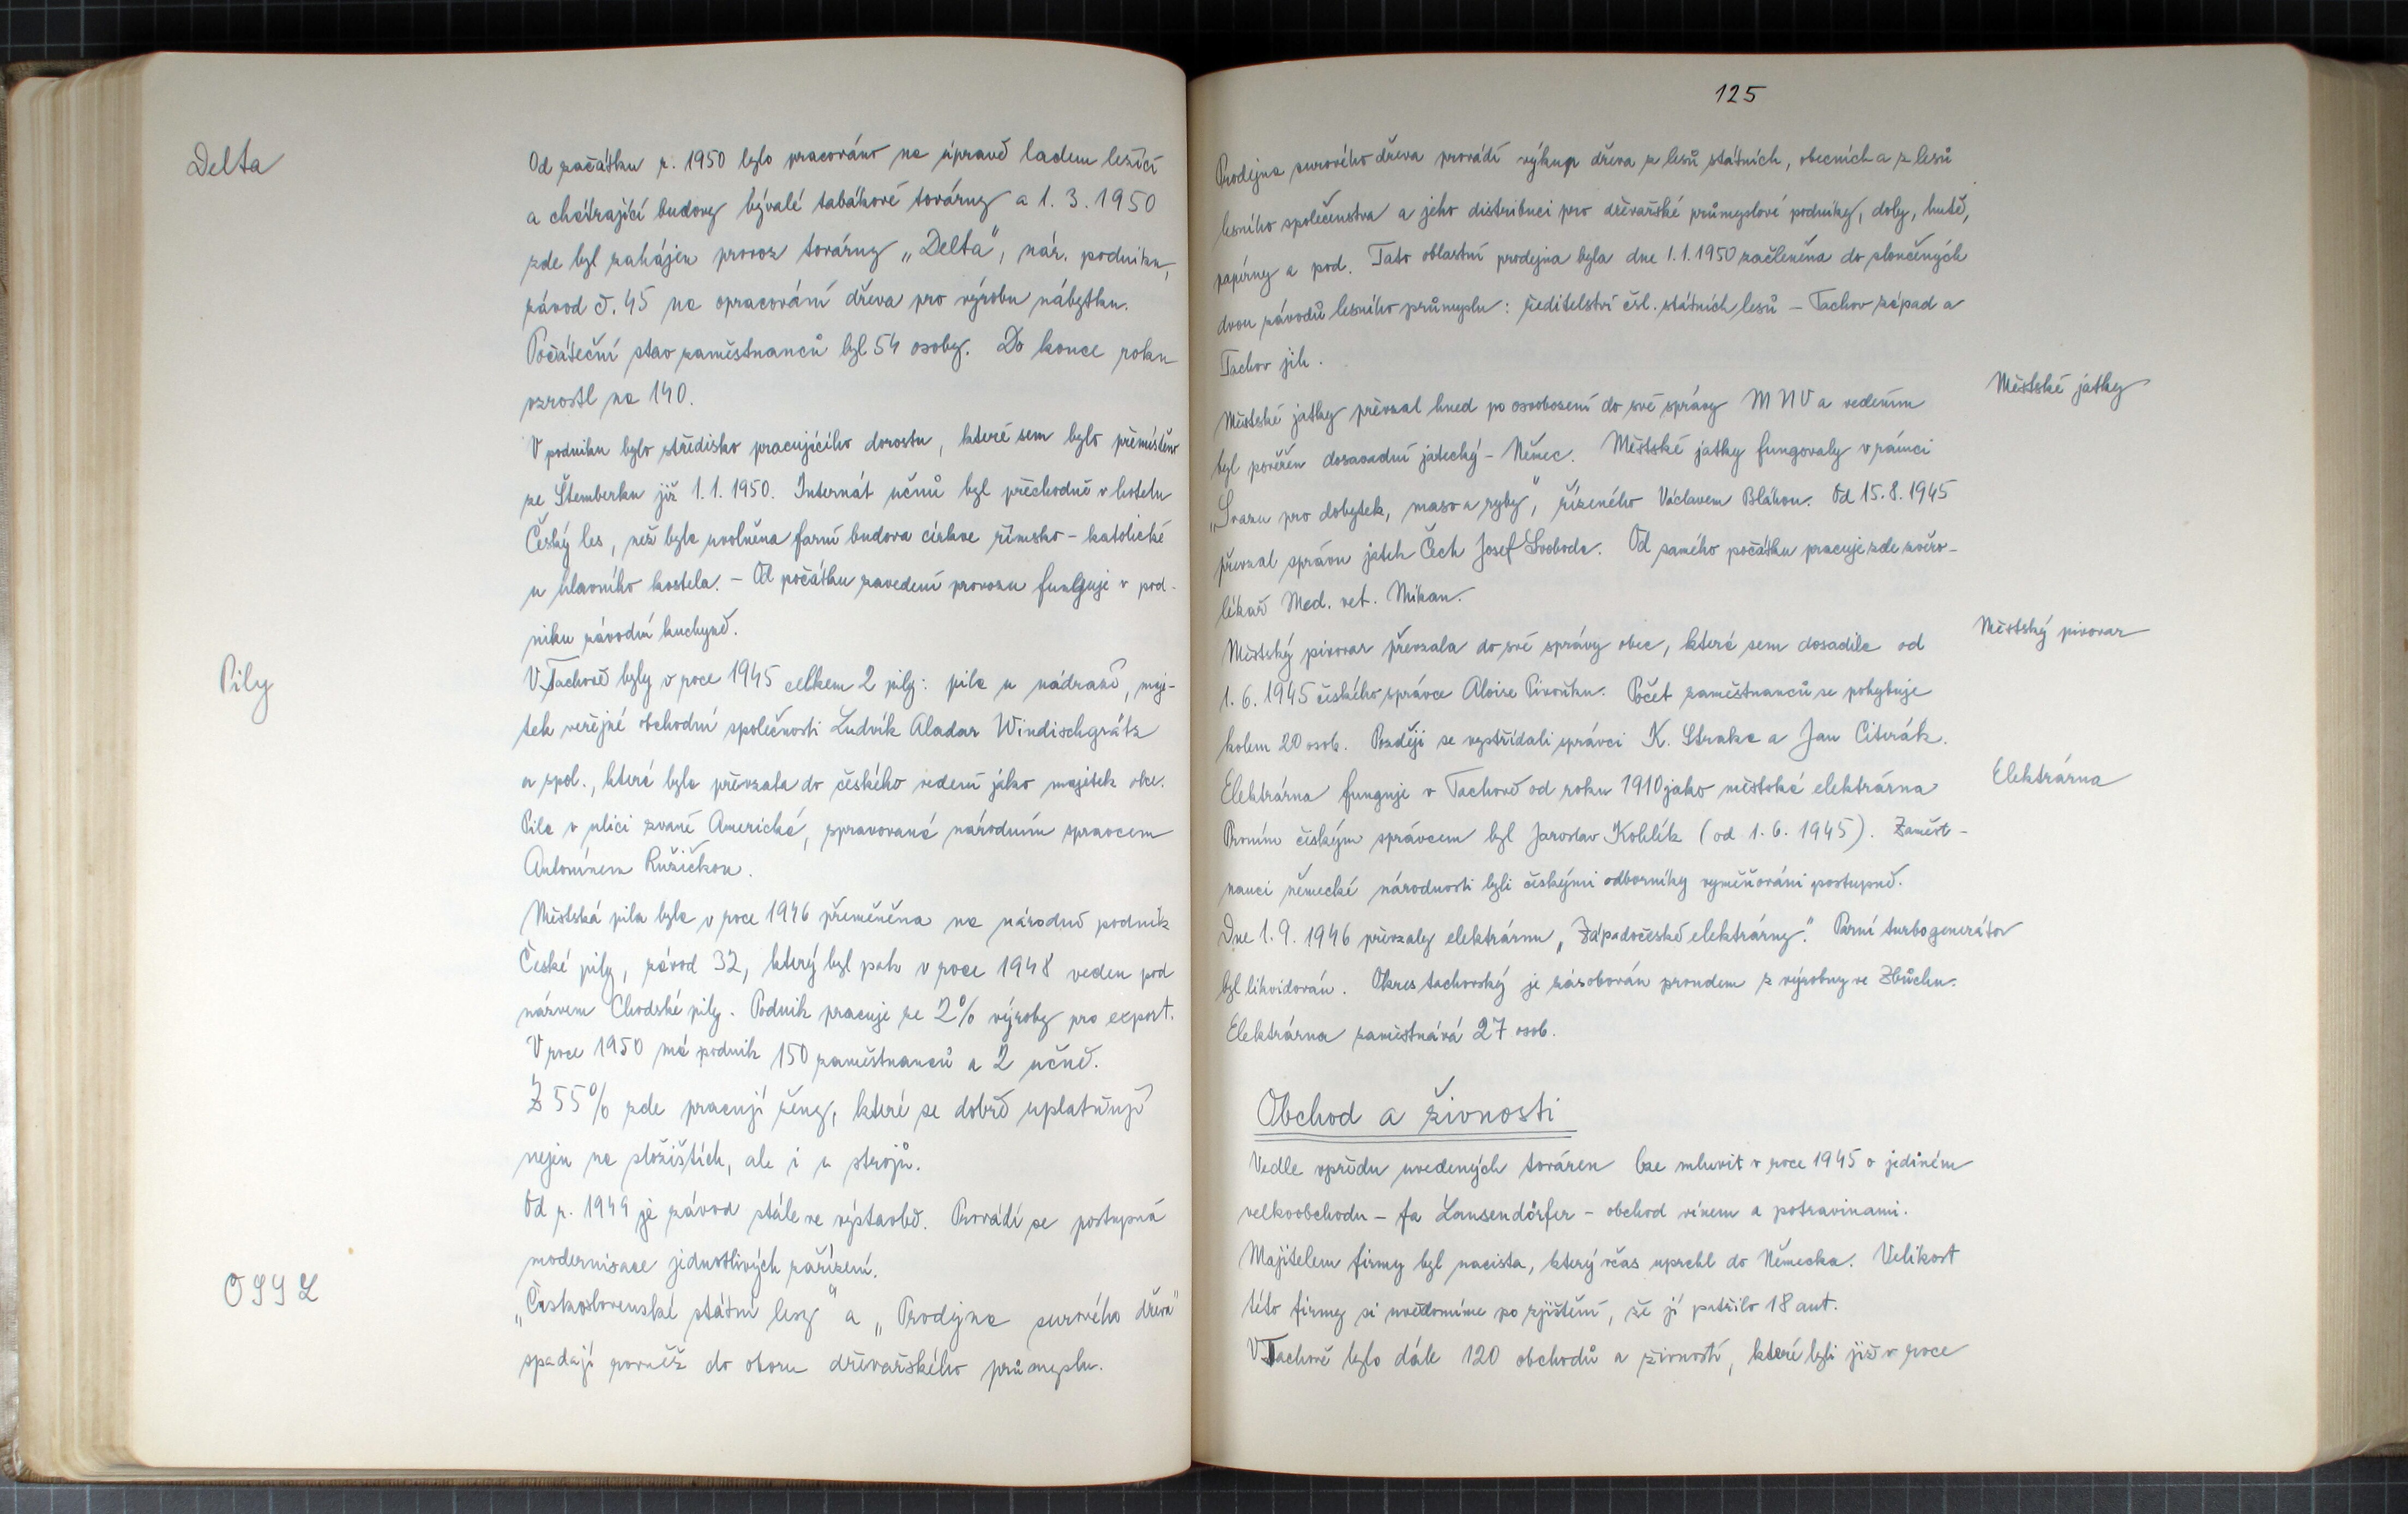 Delta
Od začátku r. 1950 bylo pracováno na úpravě ladem ležící
a chátrající budovy bývalé tabákové továrny a 1. 3. 1950
zde byl zahájen provoz továrny „Delta", nár. podniku,
závod č. 45 na opracování dřeva pro výrobu nábytku.
Počáteční stav zaměstnanců byl 54 osoby. Do konce roku
vzrostl na 140.
V podniku bylo středisko pracujícího dorostu, které sem bylo přemístěno
ze Štemberku již 1. 1. 1950. Internát učňů byl přechodně v hotelu
Český les, než byla uvolněna farní budova církve římsko - katolické
u hlavního kostela. - Od počátku zavedení provozu funguje v pod-
niku závodní kuchyně.
Pily
V Tachově byly v roce 1945 celkem 2 pily: pila u nádraží, maje-
tek veřejné obchodní společnosti Ludvík Aladar Windischgrätz
a spol., která byla převzata do českého vedení jako majetek obce.
Pila v ulici zvané Americká, spravovaná národním spravcem
Antonínem Ružičkou.
Městská pila byla v roce 1946 přeměněna na národně podnik
České pily, závod 32, který byl pak v roce 1948 veden pod
názvem Chodské pily. Podnik pracuje ze 2% výroby pro export.
V roce 1950 má podnik 150 zaměstnanců a 2 učně.
Z 55% zde pracují ženy, které se dobře uplatňují
nejen na složištích, ale i u strojů.
Od r. 1949 je závod stále ve výstavbě. Provádí se postupná
modernisace jednotlivých zařízení.
OSSZ
„Československé státní lesy" a „Prodejna surového dřeva"
spadají rovněž do oboru dřevařského průmyslu.
125
Prodejna surového dřeva provádí výkup dřeva z lesů státních, obecních a z lesů
lesního společenstva a jeho distribuci pro dřevařské průmyslové podniky, doly, hutě,
papírny a pod. Tato oblastní prodejna byla dne 1. 1. 1950 začleněna do sloučených
dvou závodů lesního průmyslu: ředitelství čsl. státních lesů - Tachov západ a
Tachov jih.
Městské jatky
Městské jatky převzal hned po osvobození do své správy MNV a vedením
byl pověřen dosavadní jatecký - Němec. Městské jatky fungovaly v rámci
„Svazu pro dobytek, maso a ryby", řízeného Václavem Bláhou. Od 15. 8. 1945
převzal správu jatek Čech Josef Svoboda. Od samého počátku pracuje zde zvěro-
lékař Med. vet. Mikan.
Městský pivovar
Městský pivovar převzala do své správy obec, která sem dosadila od
1. 6. 1945 českého správce Aloise Pivoňku. Počet zaměstnanců se pohybuje
kolem 20 osob. Později se vystřídali správci K. Straka a Jan Citerák.
Elektrárna
Elektrárna funguje v Tachově od roku 1910 jako městská elektrárna
Prvním českým správcem byl Jaroslav Kohlík (od 1. 6. 1945). Zaměst-
nanci německé národnosti byli českými odborníky vyměňováni postupně.
Dne 1. 9. 1946 převzaly elektrárnu „Západočeské elektrárny." Parní turbogenerátor
byl likvidován. Okres tachovský je zásobován proudem z výrobny ve Zbůchu.
Elektrárna zaměstnává 27 osob.
Obchod a živnosti
Vedle vpředu uvedených továren lze mluvit v roce 1945 o jediném
velkoobchodu - fa Lansendörfer - obchod vínem a potravinami.
Majitelem firmy byl nacista, který včas uprchl do Německa. Velikost
této firmy si uvědomíme po zjištění, že jí patřilo 18 aut.
V Tachově bylo dále 120 obchodů a živností, které byli již v roce